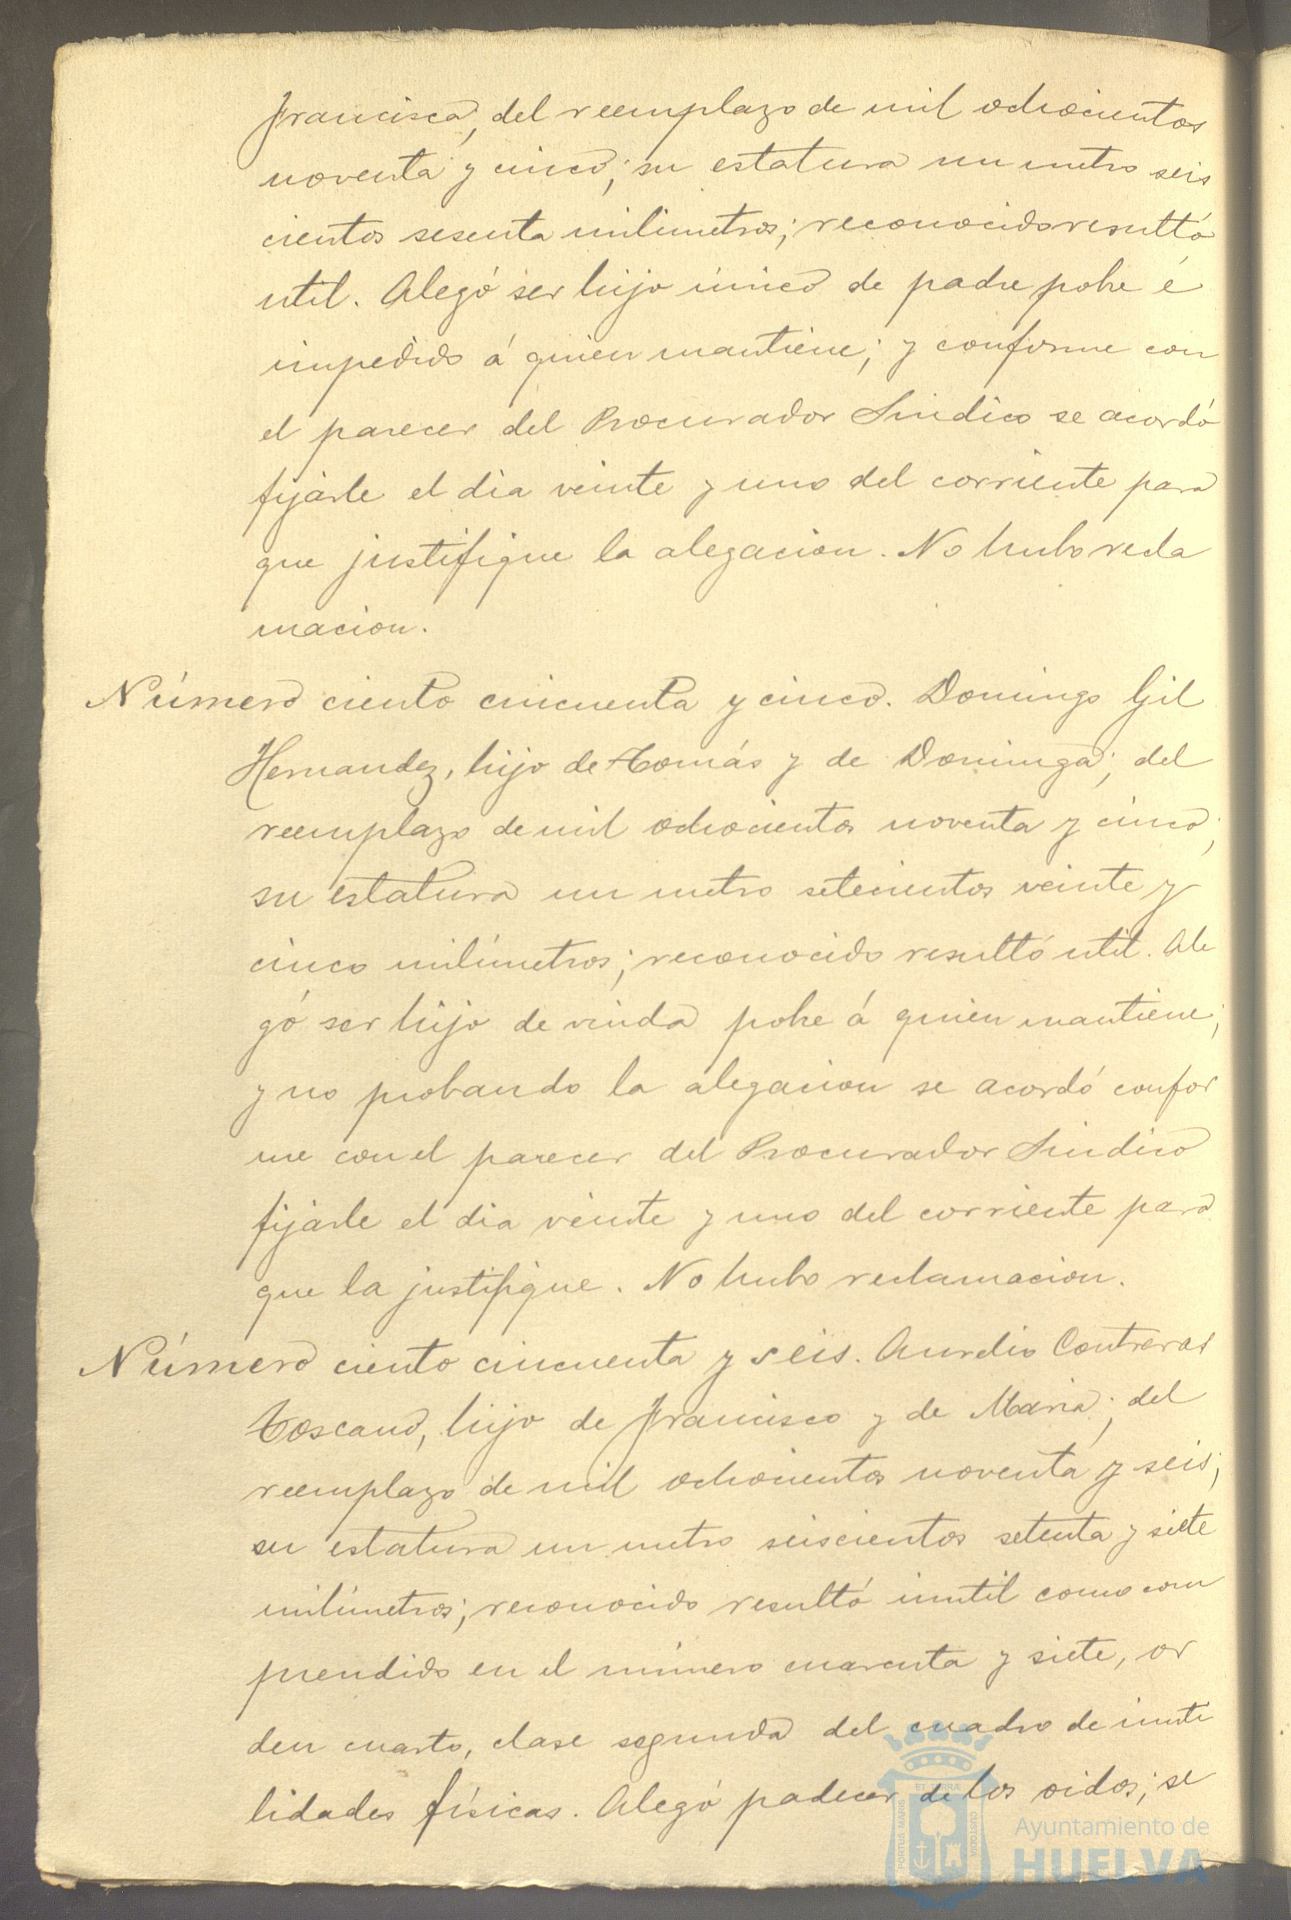 Francisca, del reemplazo de mil ochocientos
noventa y cinco; su estatura un metro seis
cientos sesenta milimetros; reconocido resultó
util. Alegó ser hijo único de padre pobre é
impedido á quien mantiene; y conforme con
el parecer del Procurador Sindico se acordó
fijarle el dia veinte y uno del corriente para
que justifique la alegacion. No hubo recla
macion.
Número ciento cincuenta y cinco. Domingo Gil
Hernandez, hijo de Tomás y de Dominga; del
reemplazo de mil ochocientos noventa y cinco;
su estatura un metro setecientos veinte y
cinco milímetros; reconocido resultó util. Ale
gó ser hijo de viuda pobre á quien mantiene;
y no probando la alegacion se acordó confor
me con el parecer del Procurador Sindico
fijarle el dia veinte y uno del corriente para
que la justifique. No hubo reclamacion.
Número ciento cincuenta y seis. Aurelio Contreras
Toscano, hijo de Francisco y de Maria; del
reemplazo de mil ochocientos noventa y seis;
su estatura un metro seiscientos setenta y siete
milímetros; reconocido resultó inutil como com
prendido en el número cuarenta y siete, or
den cuarto, clase segunda del cuadro de inuti
lidades físicas. Alegó padecer de los oidos; se
PORTUS MARIS
ET TERRÆ
CUSTODIA
Ayuntamiento de
HUELVA